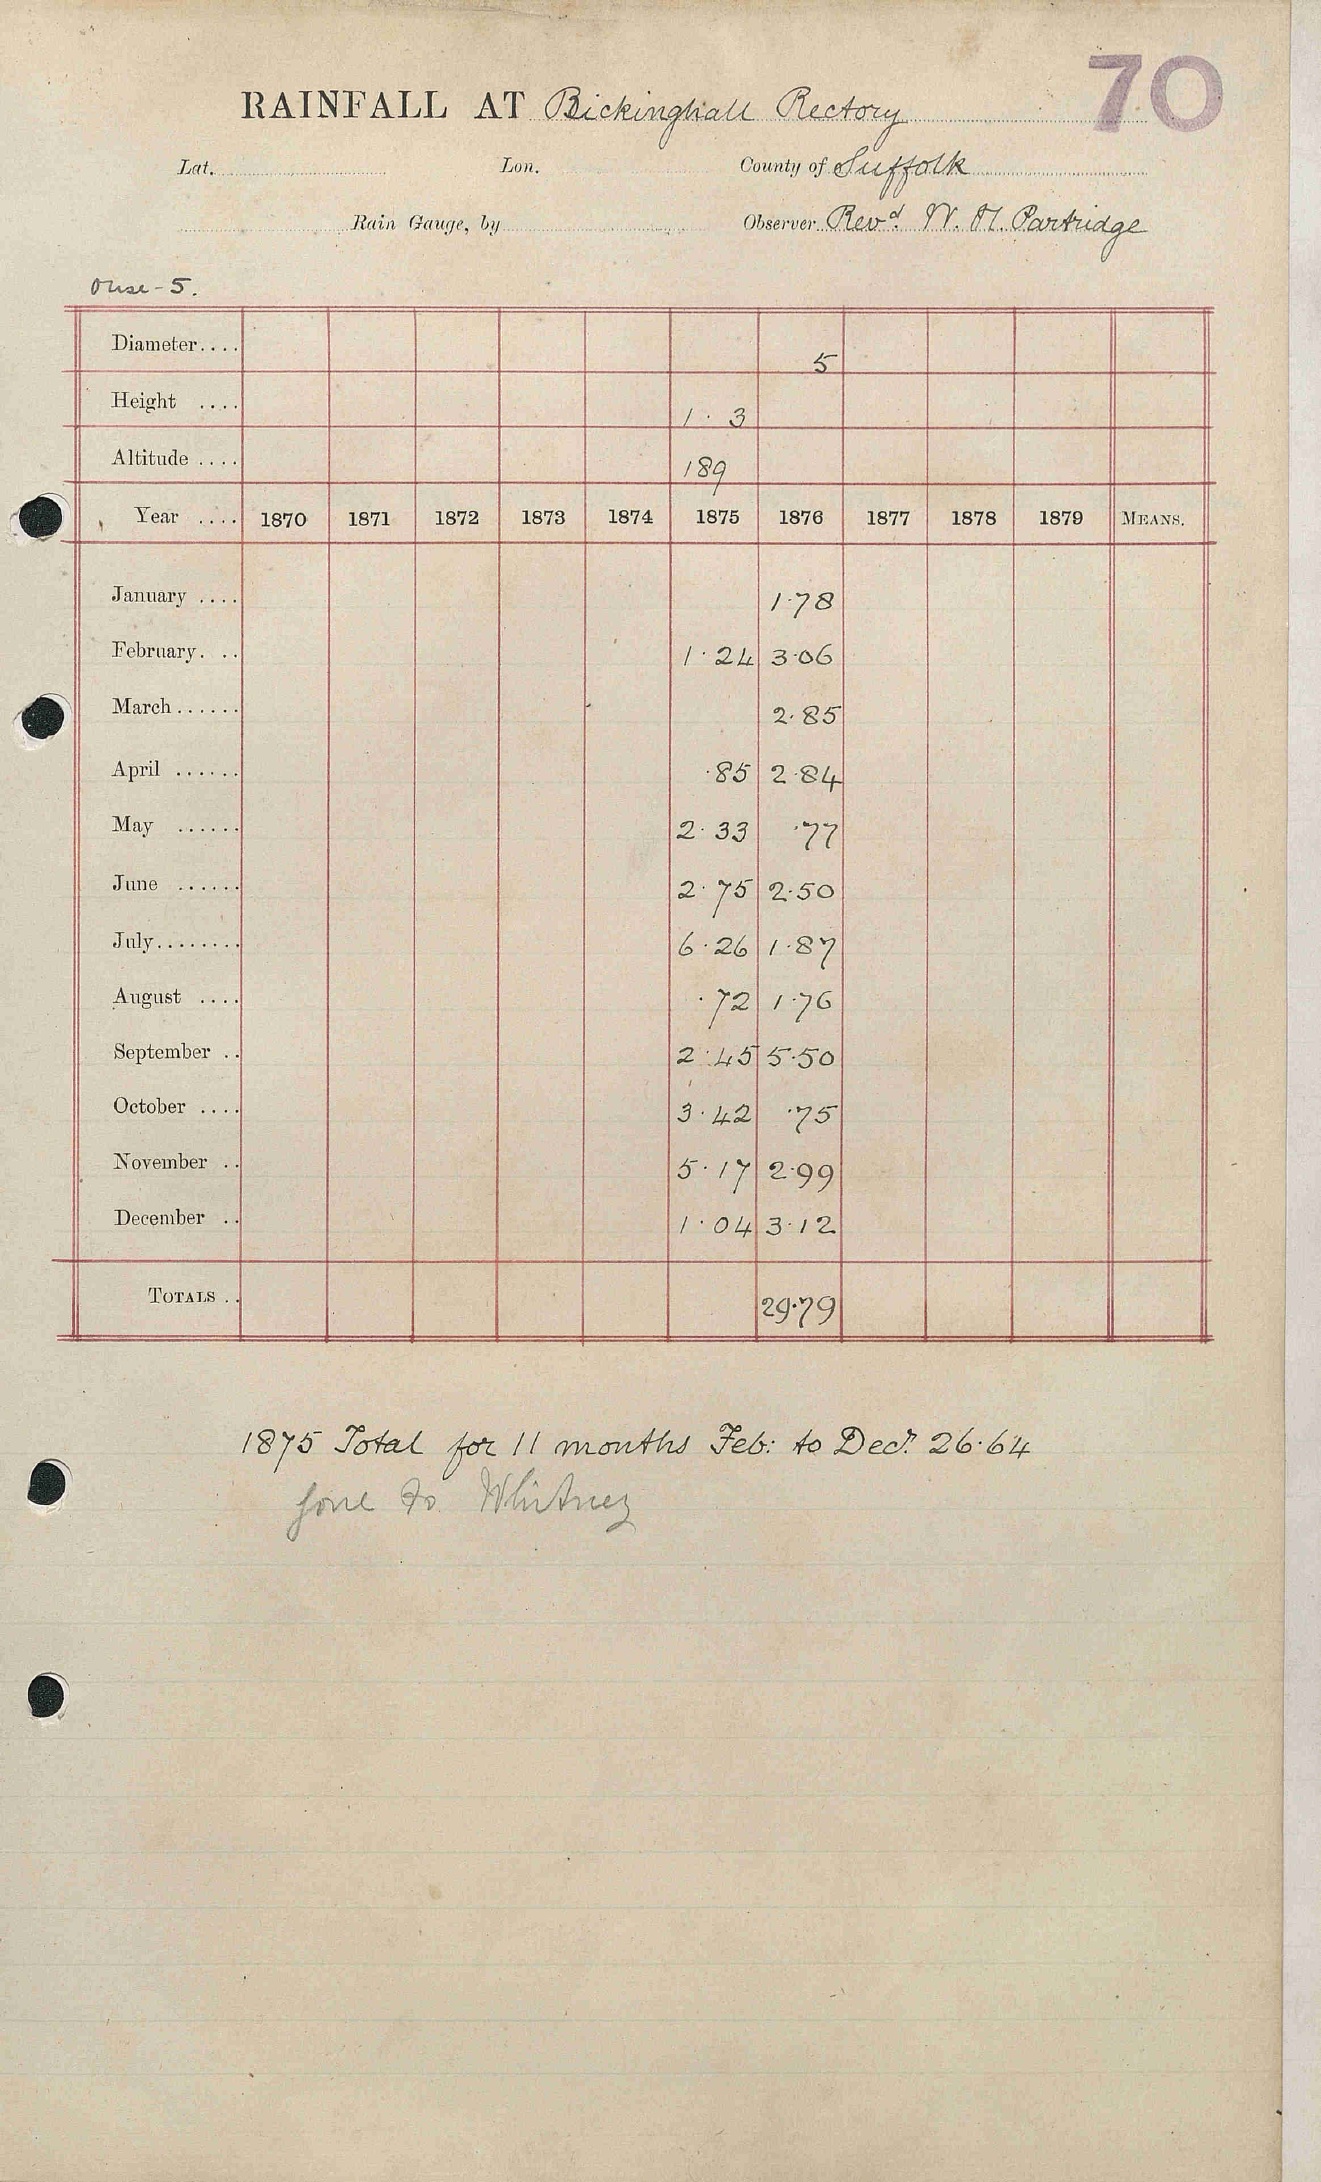 70
RAINFALL AT Bickinghall Rectory
Lat. Lon. County of Suffolk
Rain Gauge, by Observer Revd. W. H. Partridge
Ouse - 5.
Diameter.... 5
Height .... 1 · 3
Altitude .... 189
Year .... 1870 1871 1872 1873 1874 1875 1876 1877 1878 1879 MEANS.
January .... 1·78
February. .. 1·24 3·06
March...... 2·85
April ...... ·85 2·84
May ...... 2·33 ·77
June ...... 2·75 2·50
July........ 6·26 1·87
August .... ·72 1·76
September .. 2·45 5·50
October .... 3·42 ·75
November .. 5·17 2·99
December .. 1·04 3·12
TOTALS .. 29·79
1875 Total for 11 months Feb: to Decr. 26·64
gone to